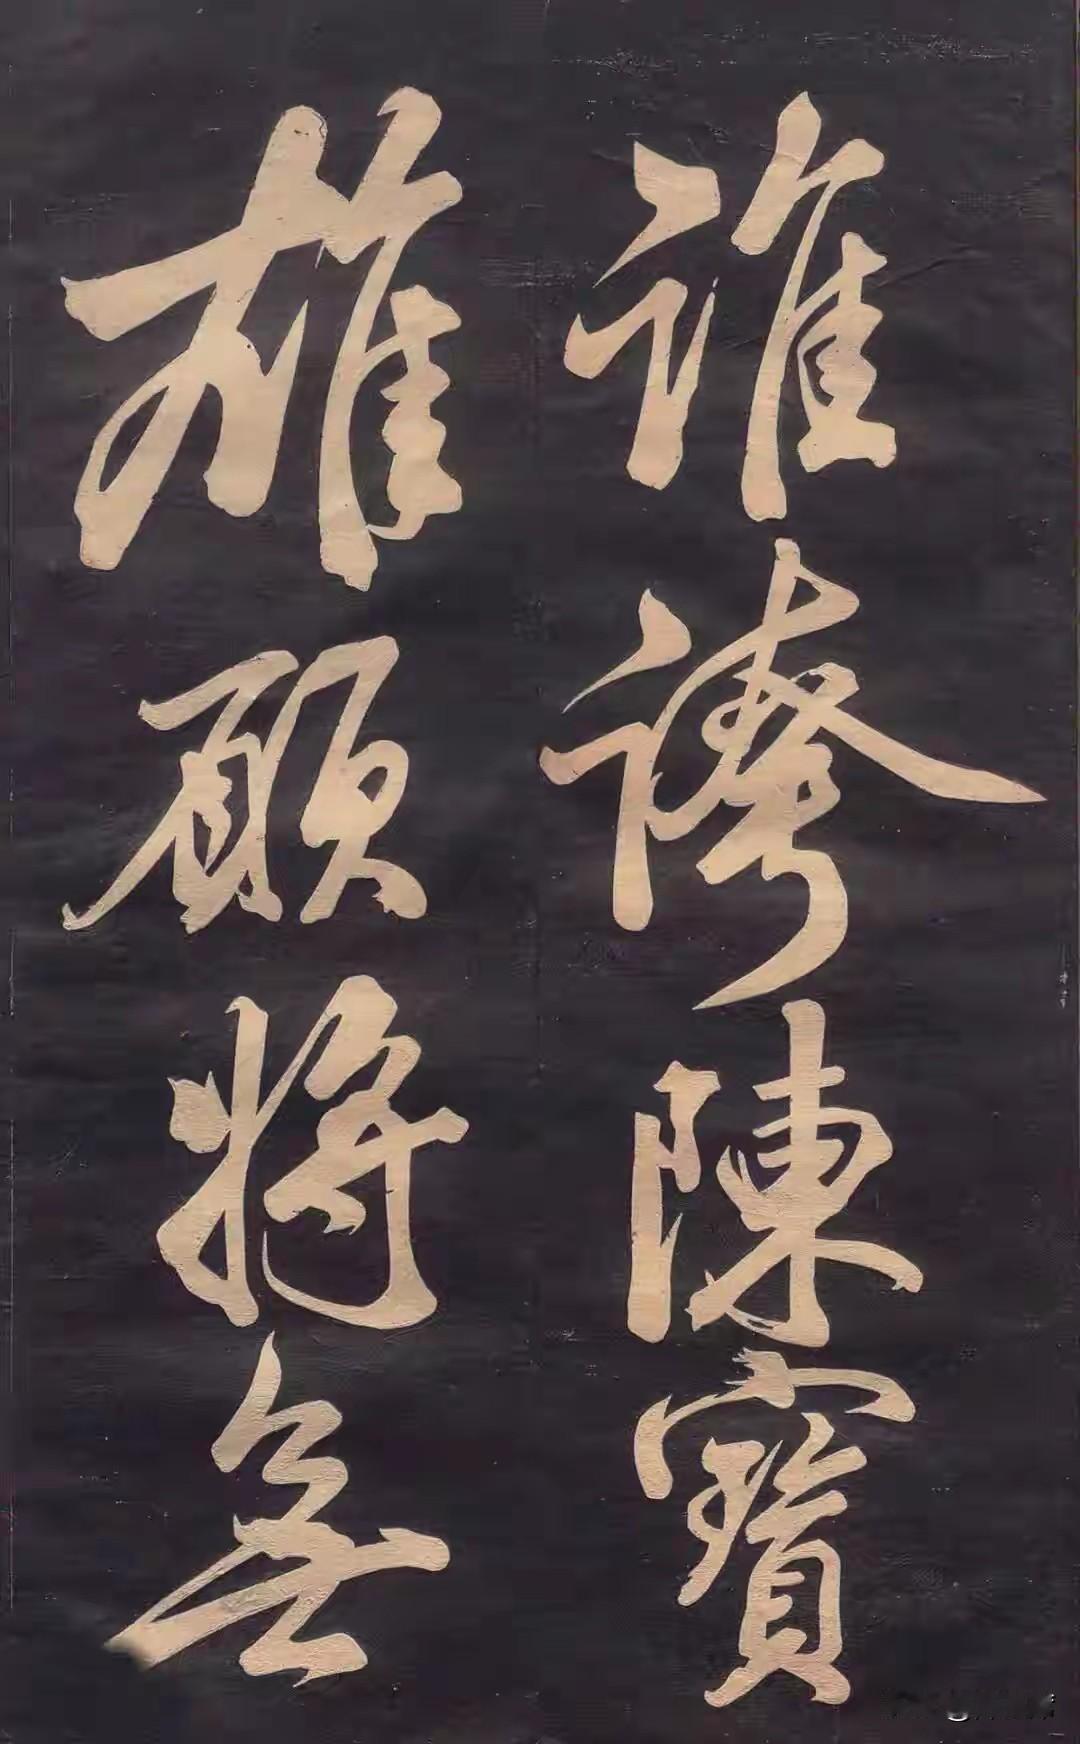 誰誇陳寶
雄顧將無